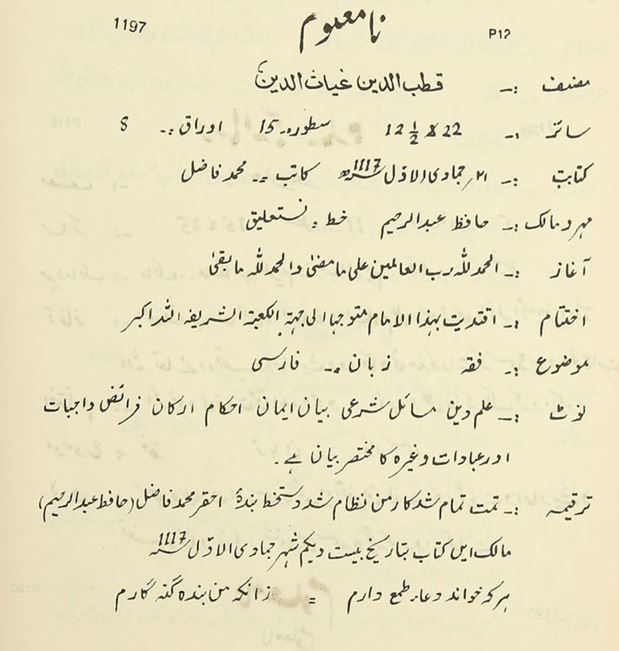 1197 نامعلوم P12
مصنف :- قطب الدین غیاث الدین
سائز :- 22 x 12 ½ سطور :- 15 اوراق :- 8
کتابت :- ۲۱؍ جمادی الاوّل 1117ھ کاتب :- محمد فاضل
مہر و مالک :- حافظ عبدالرحیم خط :- نستعلیق
آغاز :- الحمد للہ رب العالمین علیٰ ما مضیٰ والحمد للہ ما بقیٰ
اختتام :- اقتدیت بہذا الامام متوجہا الی جہۃ الکعبۃ الشریفہ اللہ اکبر
موضوع :- فقہ زبان :- فارسی
نوٹ :- علم دین مسائل شرعی بیان ایمان احکام ارکان فرائض واجبات
اور عبادات وغیرہ کا مختصر بیان ہے۔
ترقیمہ :- تمت تمام شد کار من نظام شد دستخط بندۂ احقر محمد فاضل (حافظ عبدالرحیم)
مالک ایں کتاب بتاریخ بیست ویکم شہر جمادی الاوّل سنہ 1117
ہر کہ خواند دعا طمع دارم = زانکہ من بندہ گنہ گارم